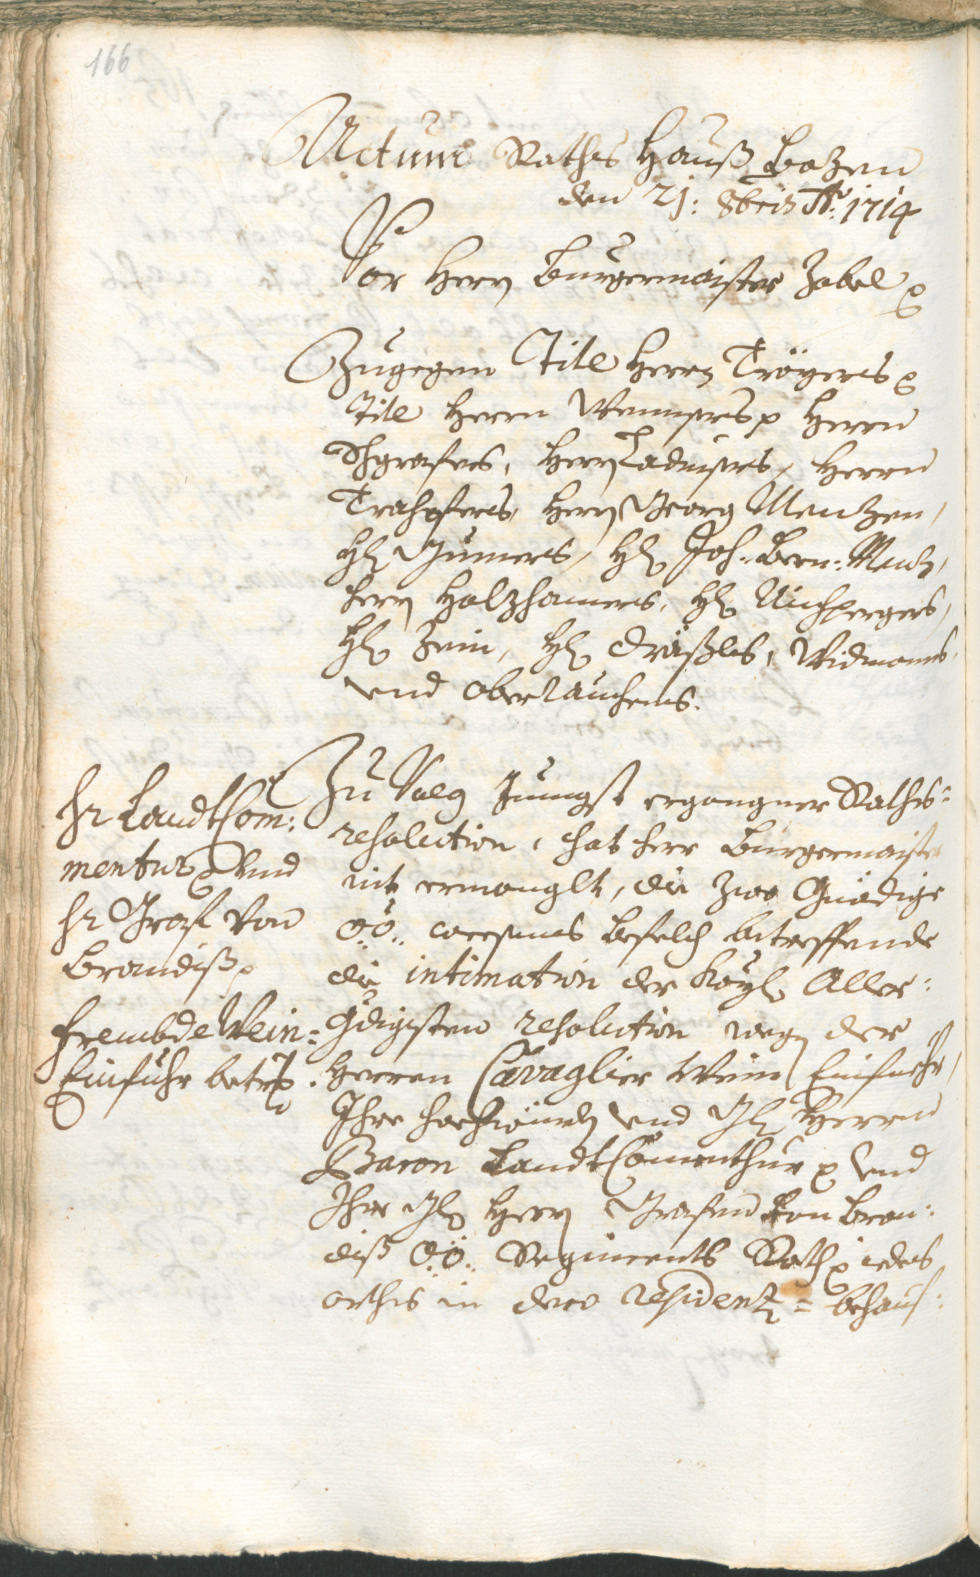 166
Actum Rathshauß Bozen
den 21: 8bris Ao: 1714
Vor Herrn Burgermaister Zobel p
Zugegen Titl Herrn Tröyers p
Titl Herrn Wenusers p Herrn
Schgrafers, Herrn Ladurners, Herrn
Trahofers, Herrn Georg Menzen,
Hl Gumers, Hl Joh: Bern: Menz,
Herrn Holzhamers, Hl Aichpergers,
Hl Zein, Hl Dräxls, Widmans
und Oberrauchens.
Hr LandtCom:
mentur p Vnd
Hr Graf Von
Brandiß p
frembde Wein:
Einfuhr betr:
Zu Volg Jüngst ergangner Raths:
resolution, hat Herr Burgermaister
nit ermanglt, die zwo Gnädige
OÖ: weesens Befelch betreffende
die intimation der Kayl: Aller:
gdigisten resolution wegen der
Herren Cavaglier Wein Einfuehr,
Ihro Hochwürden und Gl Herrn
Baron LandtComenthur p Vnd
Ihro Gl Herrn Grafen Von Bran:
diß OÖ: Regiments Rath p iedes
orths in dero residenz = behaus: